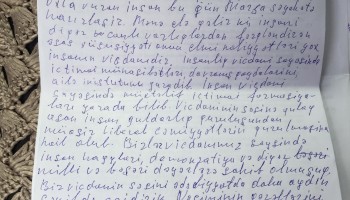 vura insan bu gün Marsa səyahətə
hazırlaşır. Mənə elə gəlir ki, insanı
digər canlı varlıqlardan fərqləndirən
əsas xüsusiyyəti onun elmi nailiyyətləri yox
insanın vicdanıdır. İnsanlıq vicdanı sayəsində
ictimai münasibətləri, davranış qaydalarını,
ailə institutunu yaratdı. İnsan vicdanı
sayəsində müxtəlif ictimai formasiya-
ları yarada bilib. Vicdanının səsinə qulaq
asan insan quldarlıq quruluşundan
müasir liberal cəmiyyətlərin qurulmasına
nail olub. Bizlər vicdanımız sayəsində
insan haqları, demokratiya və digər
milli və bəşəri dəyərlərə sahib olmuşuq.
Biz vicdanın səsini ədəbiyyatda daha aydın
Nəsiminin